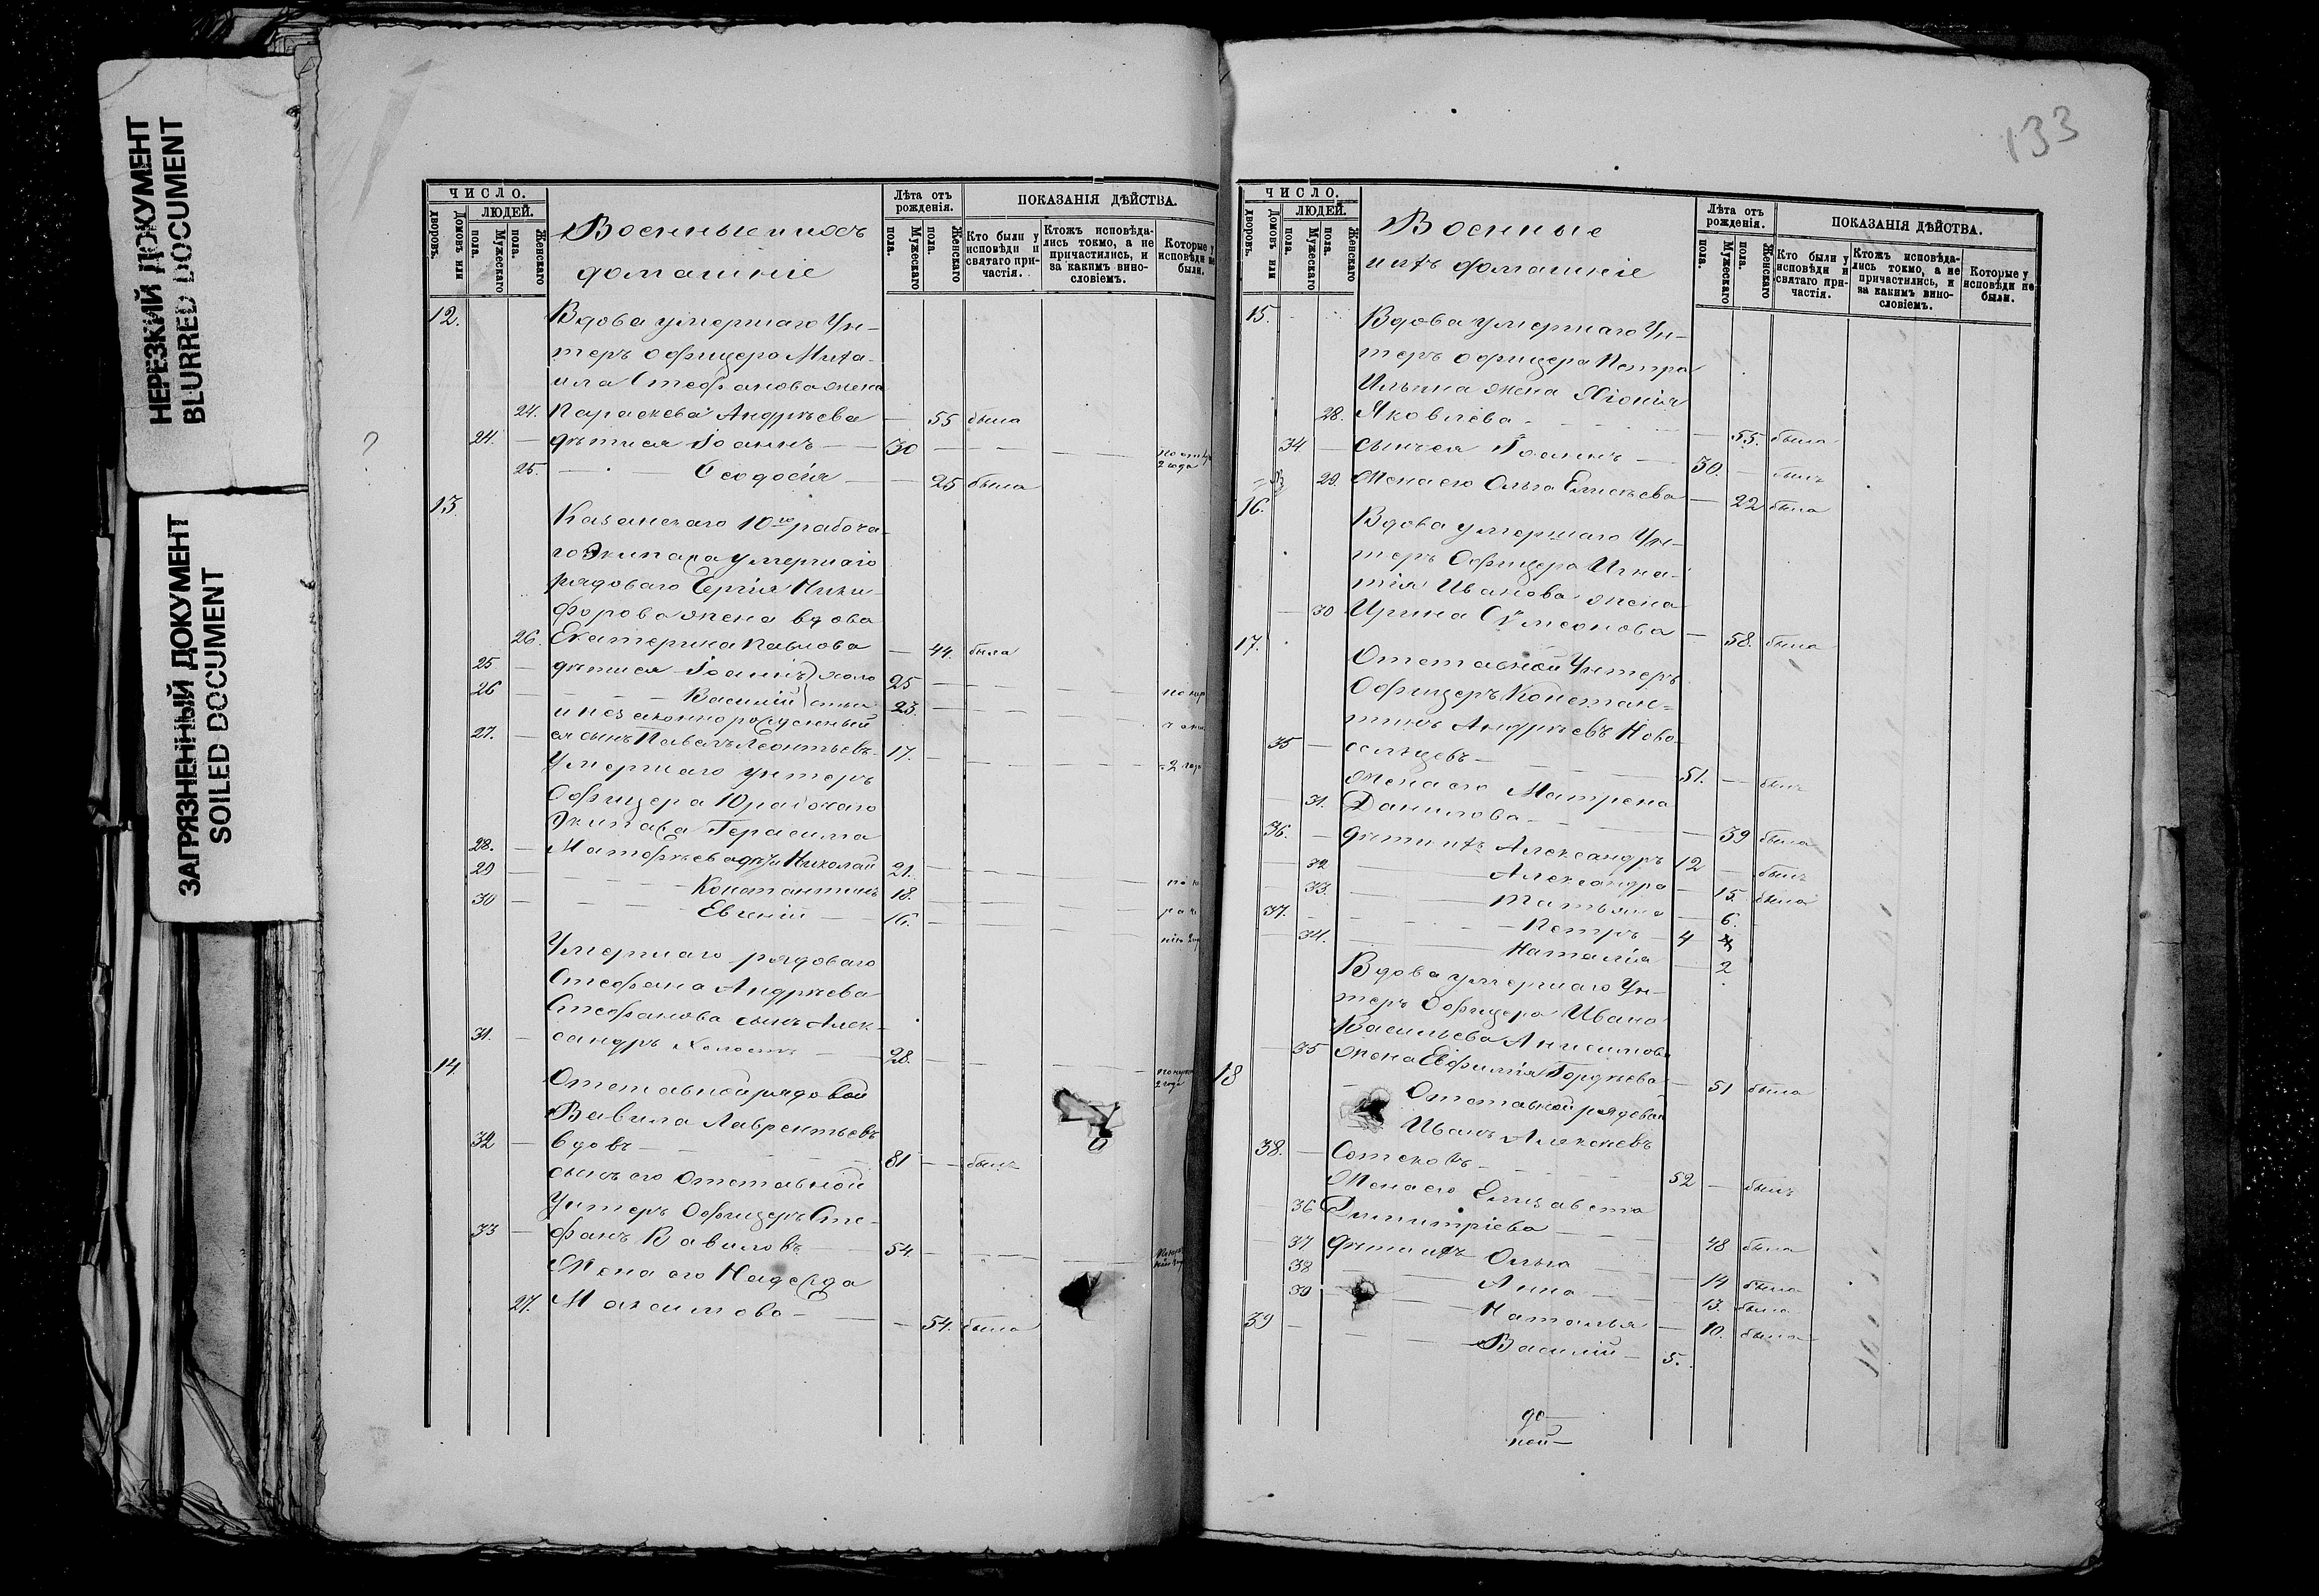 НЕРЕЗКИЙ ДОКУМЕНТ
BLURRED DOCUMENT
ЗАГРЯЗНЕННЫЙ ДОКУМЕНТ
SOILED DOCUMENT
ЧИСЛО.
ЛЮДЕЙ.
Домовъ или дворовъ.
Мужескаго пола.
Женскаго пола.
Военные и ихъ
домашніе
Лѣта отъ рожденія.
Мужескаго пола.
Женскаго пола.
ПОКАЗАНІЯ ДѢЙСТВА.
Кто были у исповѣди и святаго при-частія.
Ктожъ исповѣда-лись токмо, а не причастились, и за какимъ вино-словіемъ.
Которые у исповѣди не были.
12. Вдова умершаго Ун-
теръ офицера Миха-
ила Стефанова жена
24. Параскева Андрѣева — 55 была
24. — дѣти ея Іоаннъ — 30
2 года
25. Феодосія — 25 была
13. Казанскаго 10го рабоча-
го Экипажа умершаго
рядоваго Сергія Ники-
форова жена вдова
26. Екатерина Павлова — 44. была
25 — дѣти ея Іоаннъ холо 25
26 — Василій сты 23.
и незаконнорожденный
27. — ея сынъ Павелъ Леонтьевъ 17.
2 года
Умершаго унтеръ
Офицера 10 рабочаго
Экипажа Герасима
28. — Матфѣева дѣти Николай 21.
29 — Константинъ 18.
30 — Евгеній — 16.
Умершаго рядоваго
Стефана Андрѣева
Стефанова сынъ Алек-
31. — сандръ холостъ — 28.
2 года
14. Отставной рядовой
Вавила Лаврентьевъ
32 — вдовъ — 81 — былъ
сынъ его Отставной
Унтеръ Офицеръ Сте-
33 — фанъ Вавиловъ — 54.
Жена его Надежда
27. Максимова — 54. была
133
ЧИСЛО.
ЛЮДЕЙ.
Домовъ или дворовъ.
Мужескаго пола.
Женскаго пола.
Военные
и ихъ домашніе
Лѣта отъ рожденія.
Мужескаго пола.
Женскаго пола.
ПОКАЗАНІЯ ДѢЙСТВА.
Кто были у исповѣди и святаго при-частія.
Ктожъ исповѣда-лись токмо, а не причастились, и за какимъ вино-словіемъ.
Которые у исповѣди не были.
15. Вдова умершаго Ун-
теръ офицера Петра
Ильина жена Хіонія
28. Яковлева — 55. была
34 — сынъ ея Іоаннъ — 30. — былъ
29. Жена его Ольга Елисѣева — 22 была
16. Вдова умершаго Ун-
теръ Офицера Игна-
тія Иванова жена
30 Ирина Сѵмеонова — 58. была
17. Отставной Унтеръ
Офицеръ Констан-
тинъ Андрѣевъ Ново-
35 — сельцевъ — 51. — былъ
жена его Матрена
31. Данилова — 39 была
36. — дѣти ихъ Александръ 12 — былъ
32 Александра — 15. была
33. Татьяна — 6.
37. Петръ — 4
34. Наталія — 2
Вдова умершаго Ун-
теръ Офицера Ивана
Васильева Анисимова
35 жена Евфимія Гордѣева — 51 была
18 Отставной рядовой
Иванъ Алексѣевъ
38. — Сотсковъ — 52 — былъ
Жена его Елизавета
36 Димитріева — 48 была
37 дѣти ихъ Ольга — 14 была
38 Анна — 13. была
39 Наталья — 10. была
39 — Василій — 5.
до—
ной—